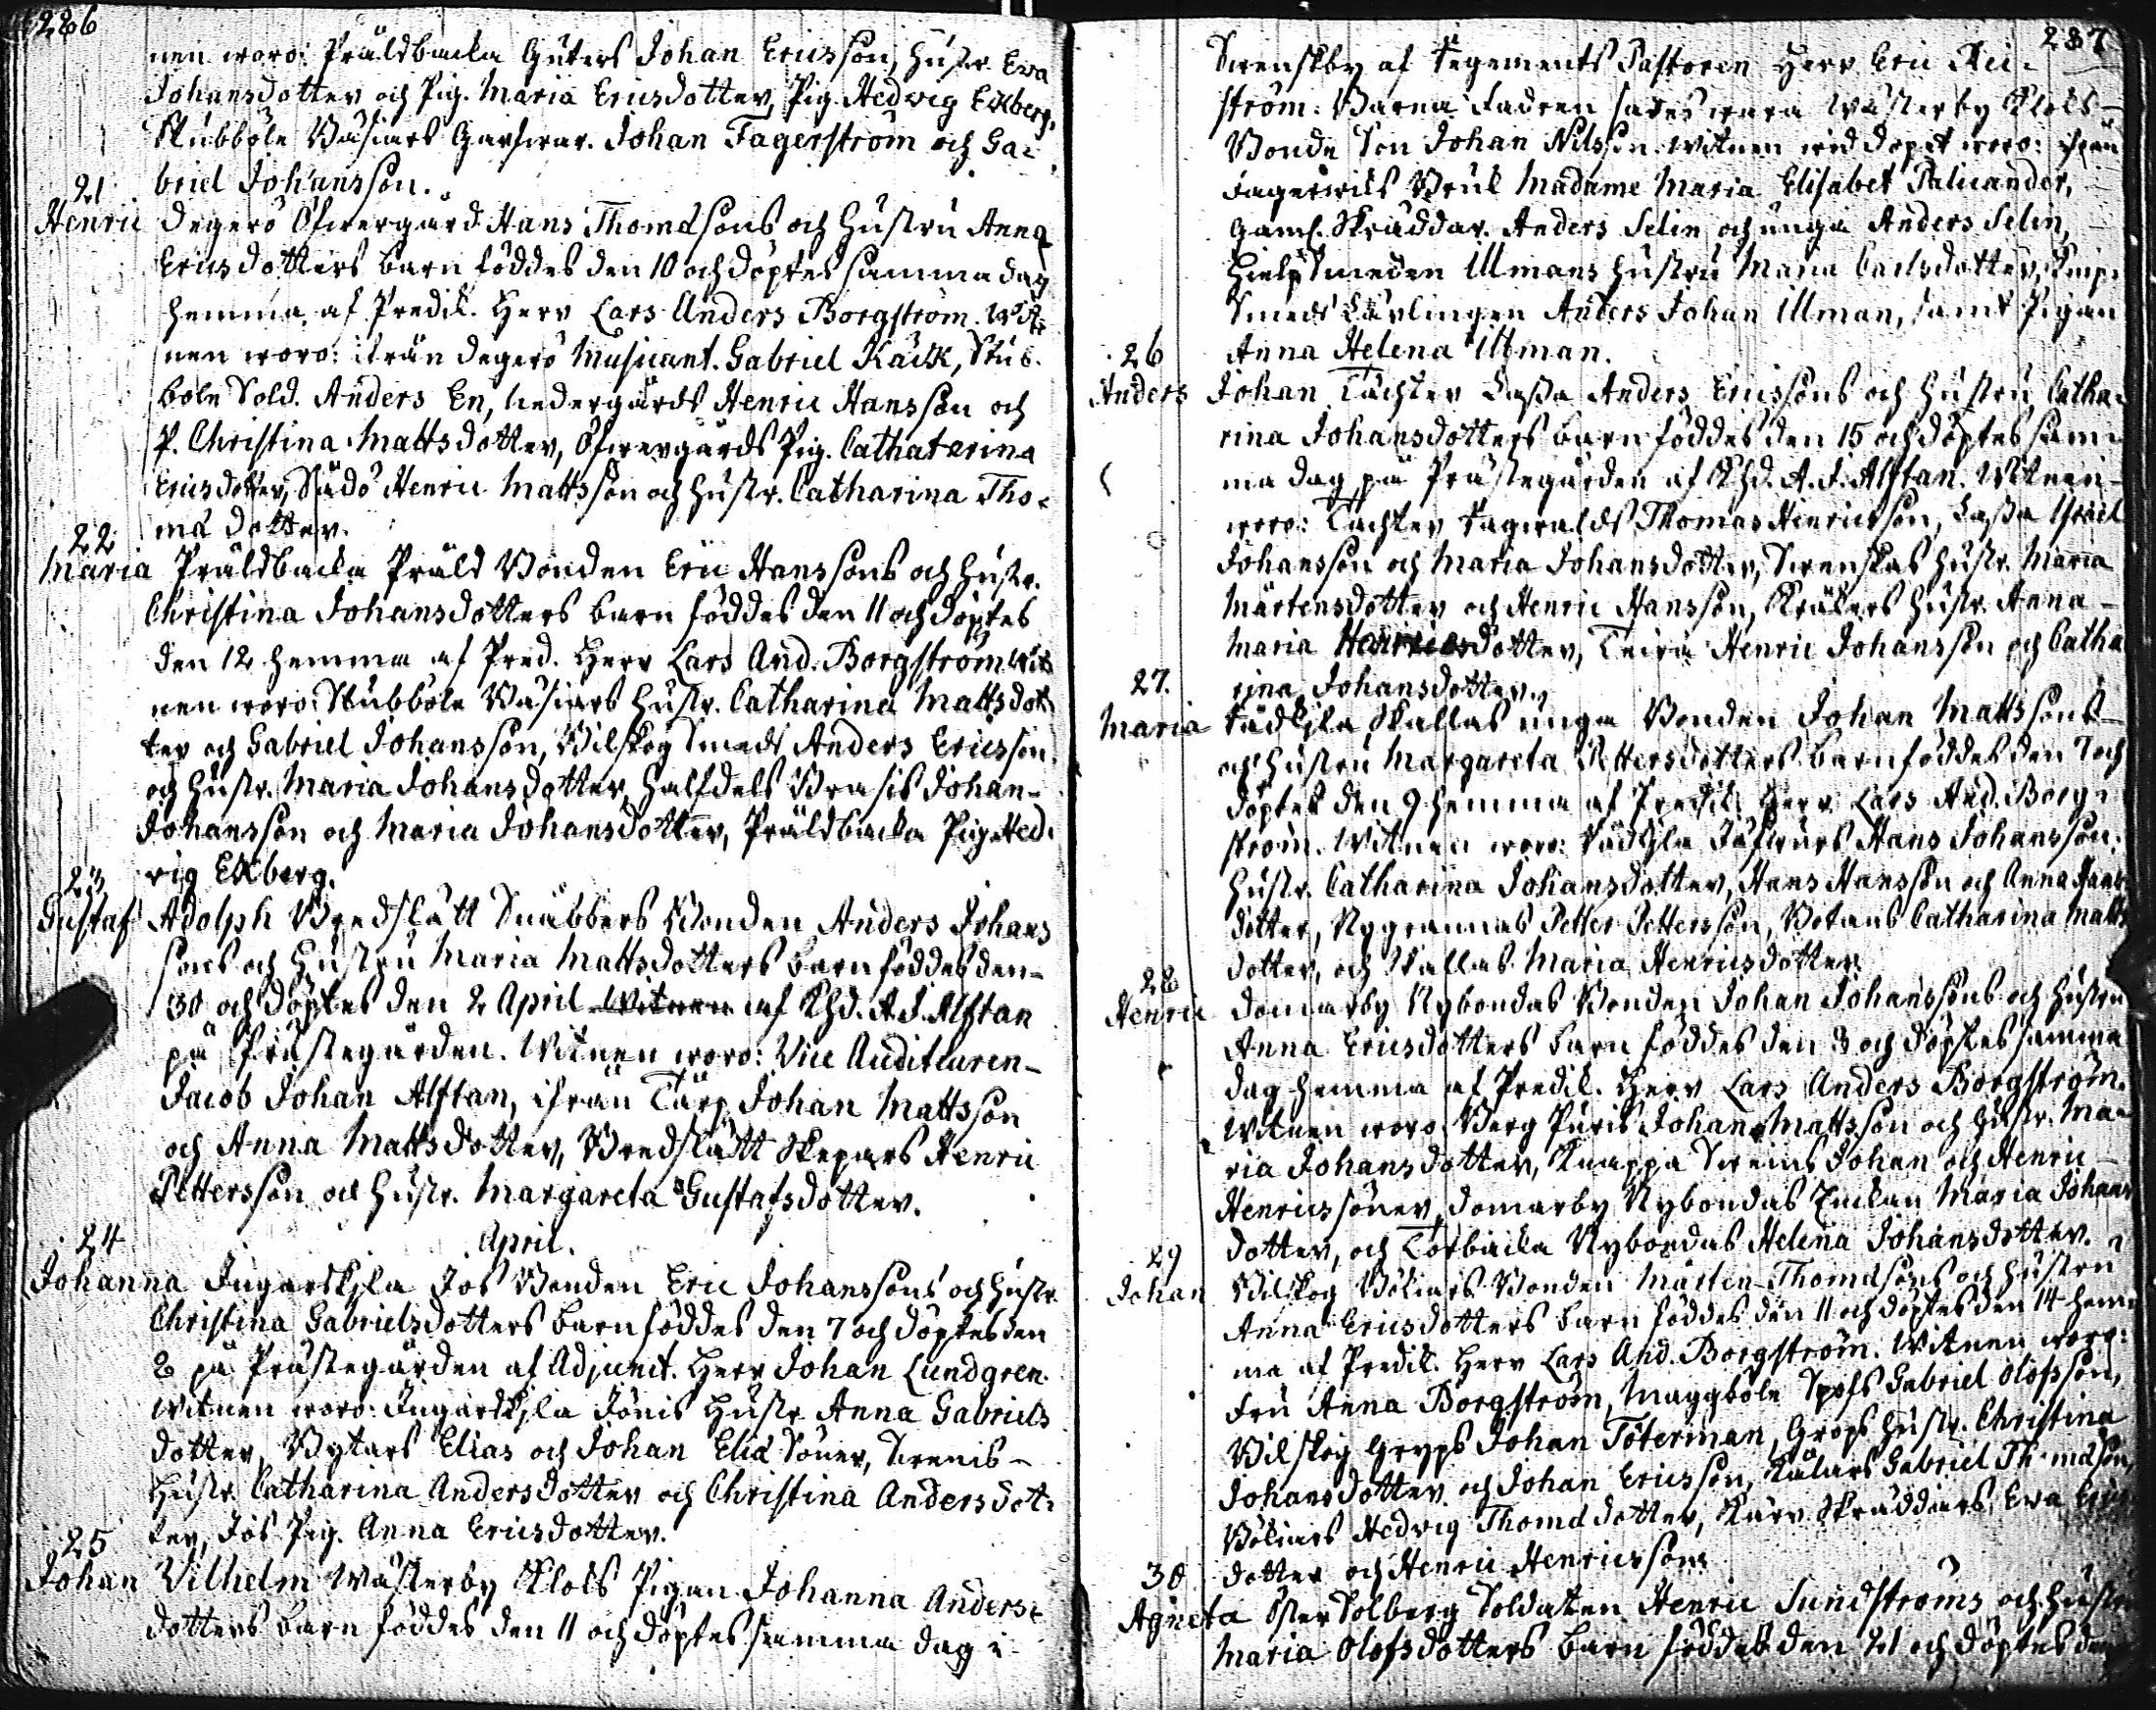 286
nen woro: Präldbacka Guters Johan Ericsson, Hustr. Eva
Johansdotter och Pig. Maria Ericsdotter, Pig. Hedvig Ekberg,
Stubböle Johan Fagerström och Ga-
briel Johansson.
21
Henric Degerö Öfwergård Hans Thomæsons och Hustru Anna
Ericsdotters barn föddes den 10 och döptes samma dag
hemma af Predik. Herr Lars Anders Borgström. Wit-
nen woro: ifrån Degerö Musicant. Gabriel Käck, Stub-
böle Sold. Anders En, Nedergårds Henric Hansson och
P. Christina Mattsdotter, Öfwergårds Pig. Cathatarina
Ericsdotter, Henric Mattsson och Hustr. Catharina Tho-
mædotter.
22
Maria Präldbacka Präld Bonden Eric Hanssons och Hustr.
Christina Johansdotters barn föddes den 11 och döptes
den 12 hemma af Pred. Herr Lars And. Borgström. Wit-
nen woro: Stubböle Hustr. Catharina Mattsdot-
ter och Gabriel Johansson, Bilskog Smeds Anders Ericsson
och Hustr. Maria Johansdotter, Halfdels Johan
Johansson och Maria Johansdotter, Präldbacka Pig. Hed-
vig Ekberg.
23
Gustaf Adolph Bredslätt Snabbers Bonden Anders Johans
sons och Hustru Maria Mattsdotters barn föddes den
30 och döptes den 2 April Witnen af Khd. A. J. Alftan
på Prästegården. Witnen woro: Vice Auditeuren
Jacob Johan Alftan, ifrån Täkter Johan Mattsson
och Anna Mattsdotter, Bredslätt Skepars Henric
Pettersson och Hustr. Margareta Gustafsdotter.
April.
24
Johanna Ingarskila Jos Bonden Eric Johanssons och Hustr.
Christina Gabrielsdotters barn föddes den 7 och döptes den
8 på Prästegården af Adjunct. Herr Johan Lundgren.
Witnen woro: Ingarskila Jönis Hustr. Anna Gabriels
dotter, Bytars Elias och Johan Eliæ Söner, Srenis
Hustr. Catharina Andersdotter och Christina Andersdot-
ter, Jos Pig. Anna Ericsdotter.
25
Johan Vilhelm Wästerby Klols Pigan Johanna Anders-
dotters barn föddes den 11 och döptes samma dag i
287
Svenskby af Regements Pastoren Herr Eric
ström. Barna Fadren sades wara Wästerby Klols
Bonde Son Johan Nilsson. Witnen wid dopet woro: ifrån
Fagerwiks Bruk Madame Maria Elisabet Palicander,
Gaml. Skräddar. Anders Selin och unga Anders Selin,
Hielpsmeden Illmans Hustru Maria Carlsdotter,
Smeds Lärlingen Anders Johan Illman, samt Pigan
Anna Helena Illman.
26
Anders Johan Täckter Lassa Anders Ericssons och Hustru Catha-
rina Johansdotters barn föddes den 15 och döptes sam-
ma dag på Prästegården af Khd. A. J. Alftan. Witnen
woro: Täckter Ragwalds Thomas Henricsson, Lassa Israël
Johansson och Maria Johansdotter, Svenskas Hustr. Maria
Mårtensdotter och Henric Hansson, Hustr. Anna
Maria Henricsdotter, Henric Johansson och Catha
rina Johansdotter.
27.
Maria Rådkila Skallas unga Bonden Johan Mattssons
och Hustru Margareta Pettersdotters barn föddes den 7 och
döptes den 9 hemma af Predik. Herr Lars And. Borg-
ström. Witnen woro: Rådkila Hans Johansson,
Hustr. Catharina Johansdotter, Hans Hansson och Anna Hans
dotter, Nygrannas Petter Pettersson, Botans Catharina Matts
dotter, och Skallas Maria Henricsdotter.
28
Henric Domarby Nybondas Bonden Johan Johanssons och Hustru
Anna Ericsdotters barn föddes den 3 och döptes samma
dag hemma af Predik. Herr Lars Anders Borgström.
Witnen woro: Berg Puris Johan Mattsson och Hustr. Ma-
ria Johansdotter, Knappa Sweins Johan och Henric
Henricssöner, Domarby Nybondas Enkan Maria Johans
dotter, och Torbacka Nybondas Helena Johansdotter.
29
Johan Bilskog Bölinars Bonden Mårten Thomæsons och Hustru
Anna Ericsdotters barn föddes den 11 och döptes den 14 hem-
ma af Predik. Herr Lars And. Borgström. Witnen woro:
Fru Anna Borgström, Maggböle Spofs Gabriel Olofsson,
Bilskog Grops Johan Töterman, Grops Hustr. Christina
Johansdotter och Johan Ericsson, Gabriel Thomæson,
Bölinars Hedvig Thomædotter, Skräddars Eva Erics
dotter och Henric Henricsson.
30
Agneta Öster Solberg Soldaten Henric Sundströms och Hustru
Maria Olofsdotters barn föddes den 21 och döptes den